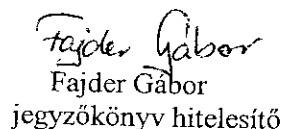 Fajder Gábor
Fajder Gábor
jegyzőkönyv hitelesítő